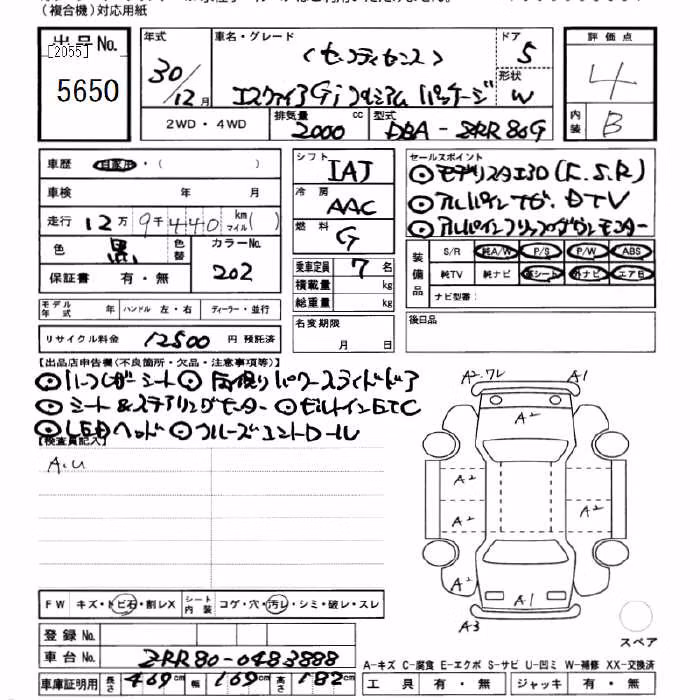 （複合機）対応用紙
出品No.
［2055］
5650
年式
30/12月
車名・グレード
（セーフティセンス）
エスクァイア Gi プレミアム パッケージ
ドア
5
形状
W
評価点
4
内装
B
2WD・4WD
排気量
2000
cc
型式
DBA - ZRR80G
車歴
自家用・（　　）
車検　年　月
走行
12万9千440
km
マイル
（　）
色
黒
色替
カラーNo.
202
保証書　有・無
モデル年式　年
ハンドル　左・右
ディーラー・並行
リサイクル料金
12500
円 預託済
シフト
IAT
冷房
AAC
燃料
G
乗車定員
7
名
積載量　kg
総重量　kg
名変期限
月　日
セールスポイント
◎モデリスタエアロ（F.S.R）
◎アルパインナビ、DTV
◎アルパインフリップダウンモニター
装備品
S/R　純A/W　P/S　P/W　ABS
純TV　純ナビ　革シート　外ナビ　エアB
ナビ型番：
後日品
【出品店申告欄(不良箇所・欠品・注意事項等)】
◎ハーフレザーシート ◎両側パワースライドドア
◎シート&ステアリングヒーター ◎ビルトインETC
◎LEDヘッド ◎クルーズコントロール
【検査員記入】
A.U
A2.ワレ
A1
A2
A2
A2
A2
A2
A2
A1
A3
スペア
FW　キズ・トビ石・割レX
シート内装　コゲ・穴・汚レ・シミ・破レ・スレ
登録 No.
車台 No.
ZRR80-0483888
車庫証明用
長さ
469
cm
幅
169
cm
高さ
182
cm
A-キズ C-腐食 E-エクボ S-サビ U-凹ミ W-補修 XX-交換済
工具　有・無
ジャッキ　有・無